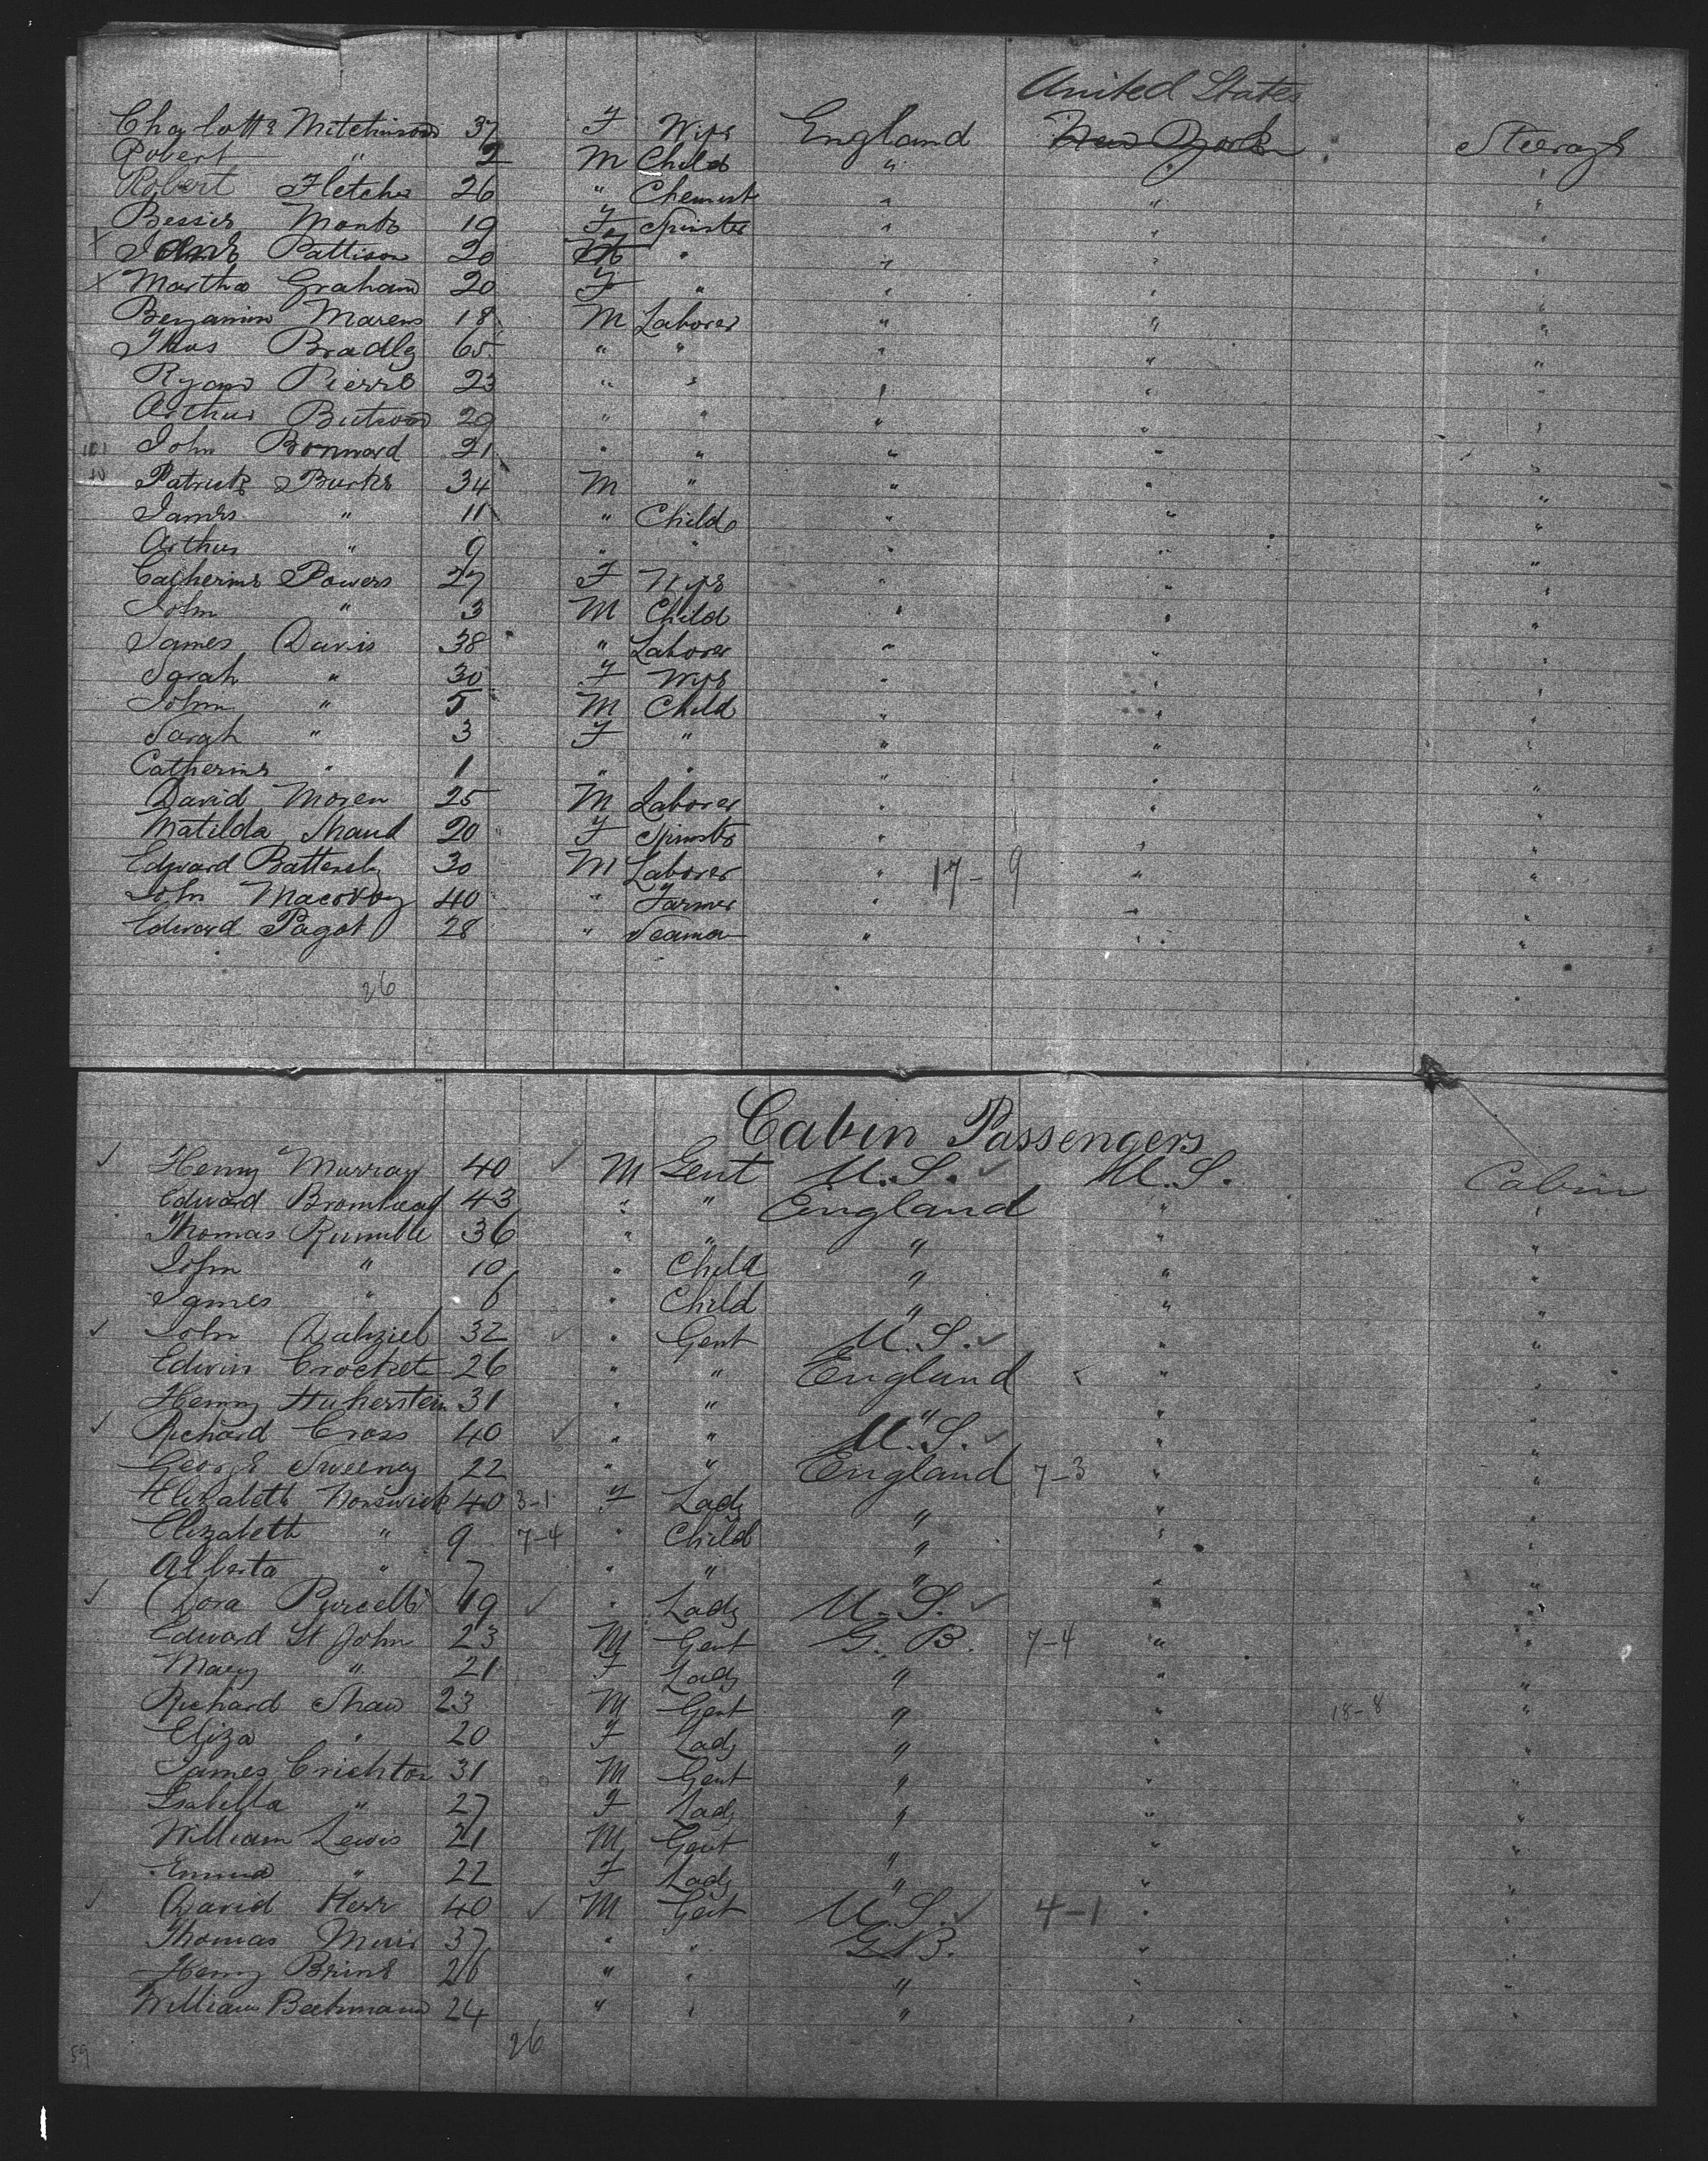 United States
Charlotte Mitchinson 37 F Wife England New York Steerage
Robert " 2 M Child " "
Robert Fletcher 26 " Chemist " " "
Bessie 19 F Spinster " " "
Jane Pattison 20 " " " "
X Martha Graham 20 F " " " "
Benjamin 18 M Laborer " " "
Thos Bradly 65 " " " " "
Ryan Pierre 23 " " " " "
Arthur 29 " " " " "
John Bonnard 21 " " " " "
Patrick Burke 34 M " " " "
James " 11 " Child " " "
Arthur " 9 " " " " "
Catherine Powers 27 F Wife " " "
John " 3 M Child " " "
James Davis 38 " Laborer " " "
Sarah " 30 F Wife " " "
John " 5 M Child " " "
Sarah " 3 F " " " "
Catherine " 1 " " " " "
David Moren 25 M Laborer " " "
Matilda Shaud 20 F Spinster " " "
Edward Battersby 30 M Laborer " 17-9 " "
John 40 " Farmer " " "
Edward Pagot 28 " Seaman " " "
26
Cabin Passengers
✓ Henry Murray 40 ✓ M Gent U.S. ✓ U.S. Cabin
Edward Bromhead 43 " " England " "
Thomas Rumble 36 " " " " "
John " 10 " Child " " "
James " 6 " Child " " "
✓ John Dalziel 32 ✓ " Gent U.S. ✓ " "
Edwin Crocket 26 " " England " "
Henry 31 " " " " "
✓ Richard Cross 40 ✓ " " U.S. ✓ " "
George Sweeney 22 " " England 7-3 " "
Elizabeth 40 3-1 F Lady " " "
Elizabeth " 9 7-4 " Child " " "
Alberta " 7 " " " " "
✓ Dora Purcell 49 ✓ " Lady U.S. ✓ " "
Edward St John 23 M Gent G.B. 7-4 " "
Mary " 21 F Lady " " "
Richard Shaw 23 M Gent " " 18-8 "
Eliza " 20 F Lady " " "
James Crichton 31 M Gent " " "
Isabella " 27 F Lady " " "
William Lewis 21 M Gent " " "
Emma " 22 F Lady " " "
✓ David Kerr 40 ✓ M Gent U.S. ✓ 4-1 " "
Thomas Muir 37 " " G.B. " "
Henry Brine 26 " " " " "
William Beekmann 24 " " " " "
26
59